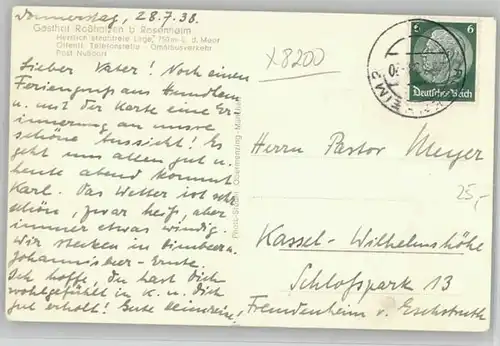 Donnerstag, 28.7.38.
Gasthof Roßholzen b Rosenheim
Herrlich staubfreie Lage, 750 m ü. d. Meer
Öffentl. Telefonstelle - Omnibusverkehr
Post Nußdorf
Lieber Vater! Noch einen
Feriengruß aus Hundham
u. mit der Karte eine Er-
innerung an unsre
schöne Aussicht! Es
geht uns allen gut u.
heute abend kommt
Karl. Das Wetter ist sehr
schön, zwar heiß, aber
immer etwas windig.
Wir stecken in Himbeer u.
Johannisbeer-Ernte.
Ich hoffe, du hast dich
wohlgefühlt in K. u. dich
gut erholt! Gute Heimreise,
x8200
6 6
Deutsches Reich
Herrn Pastor Meyer
25,-
Kassel-Wilhelmshöhe
Schloßpark 13
Fremdenheim v. Eschstruth